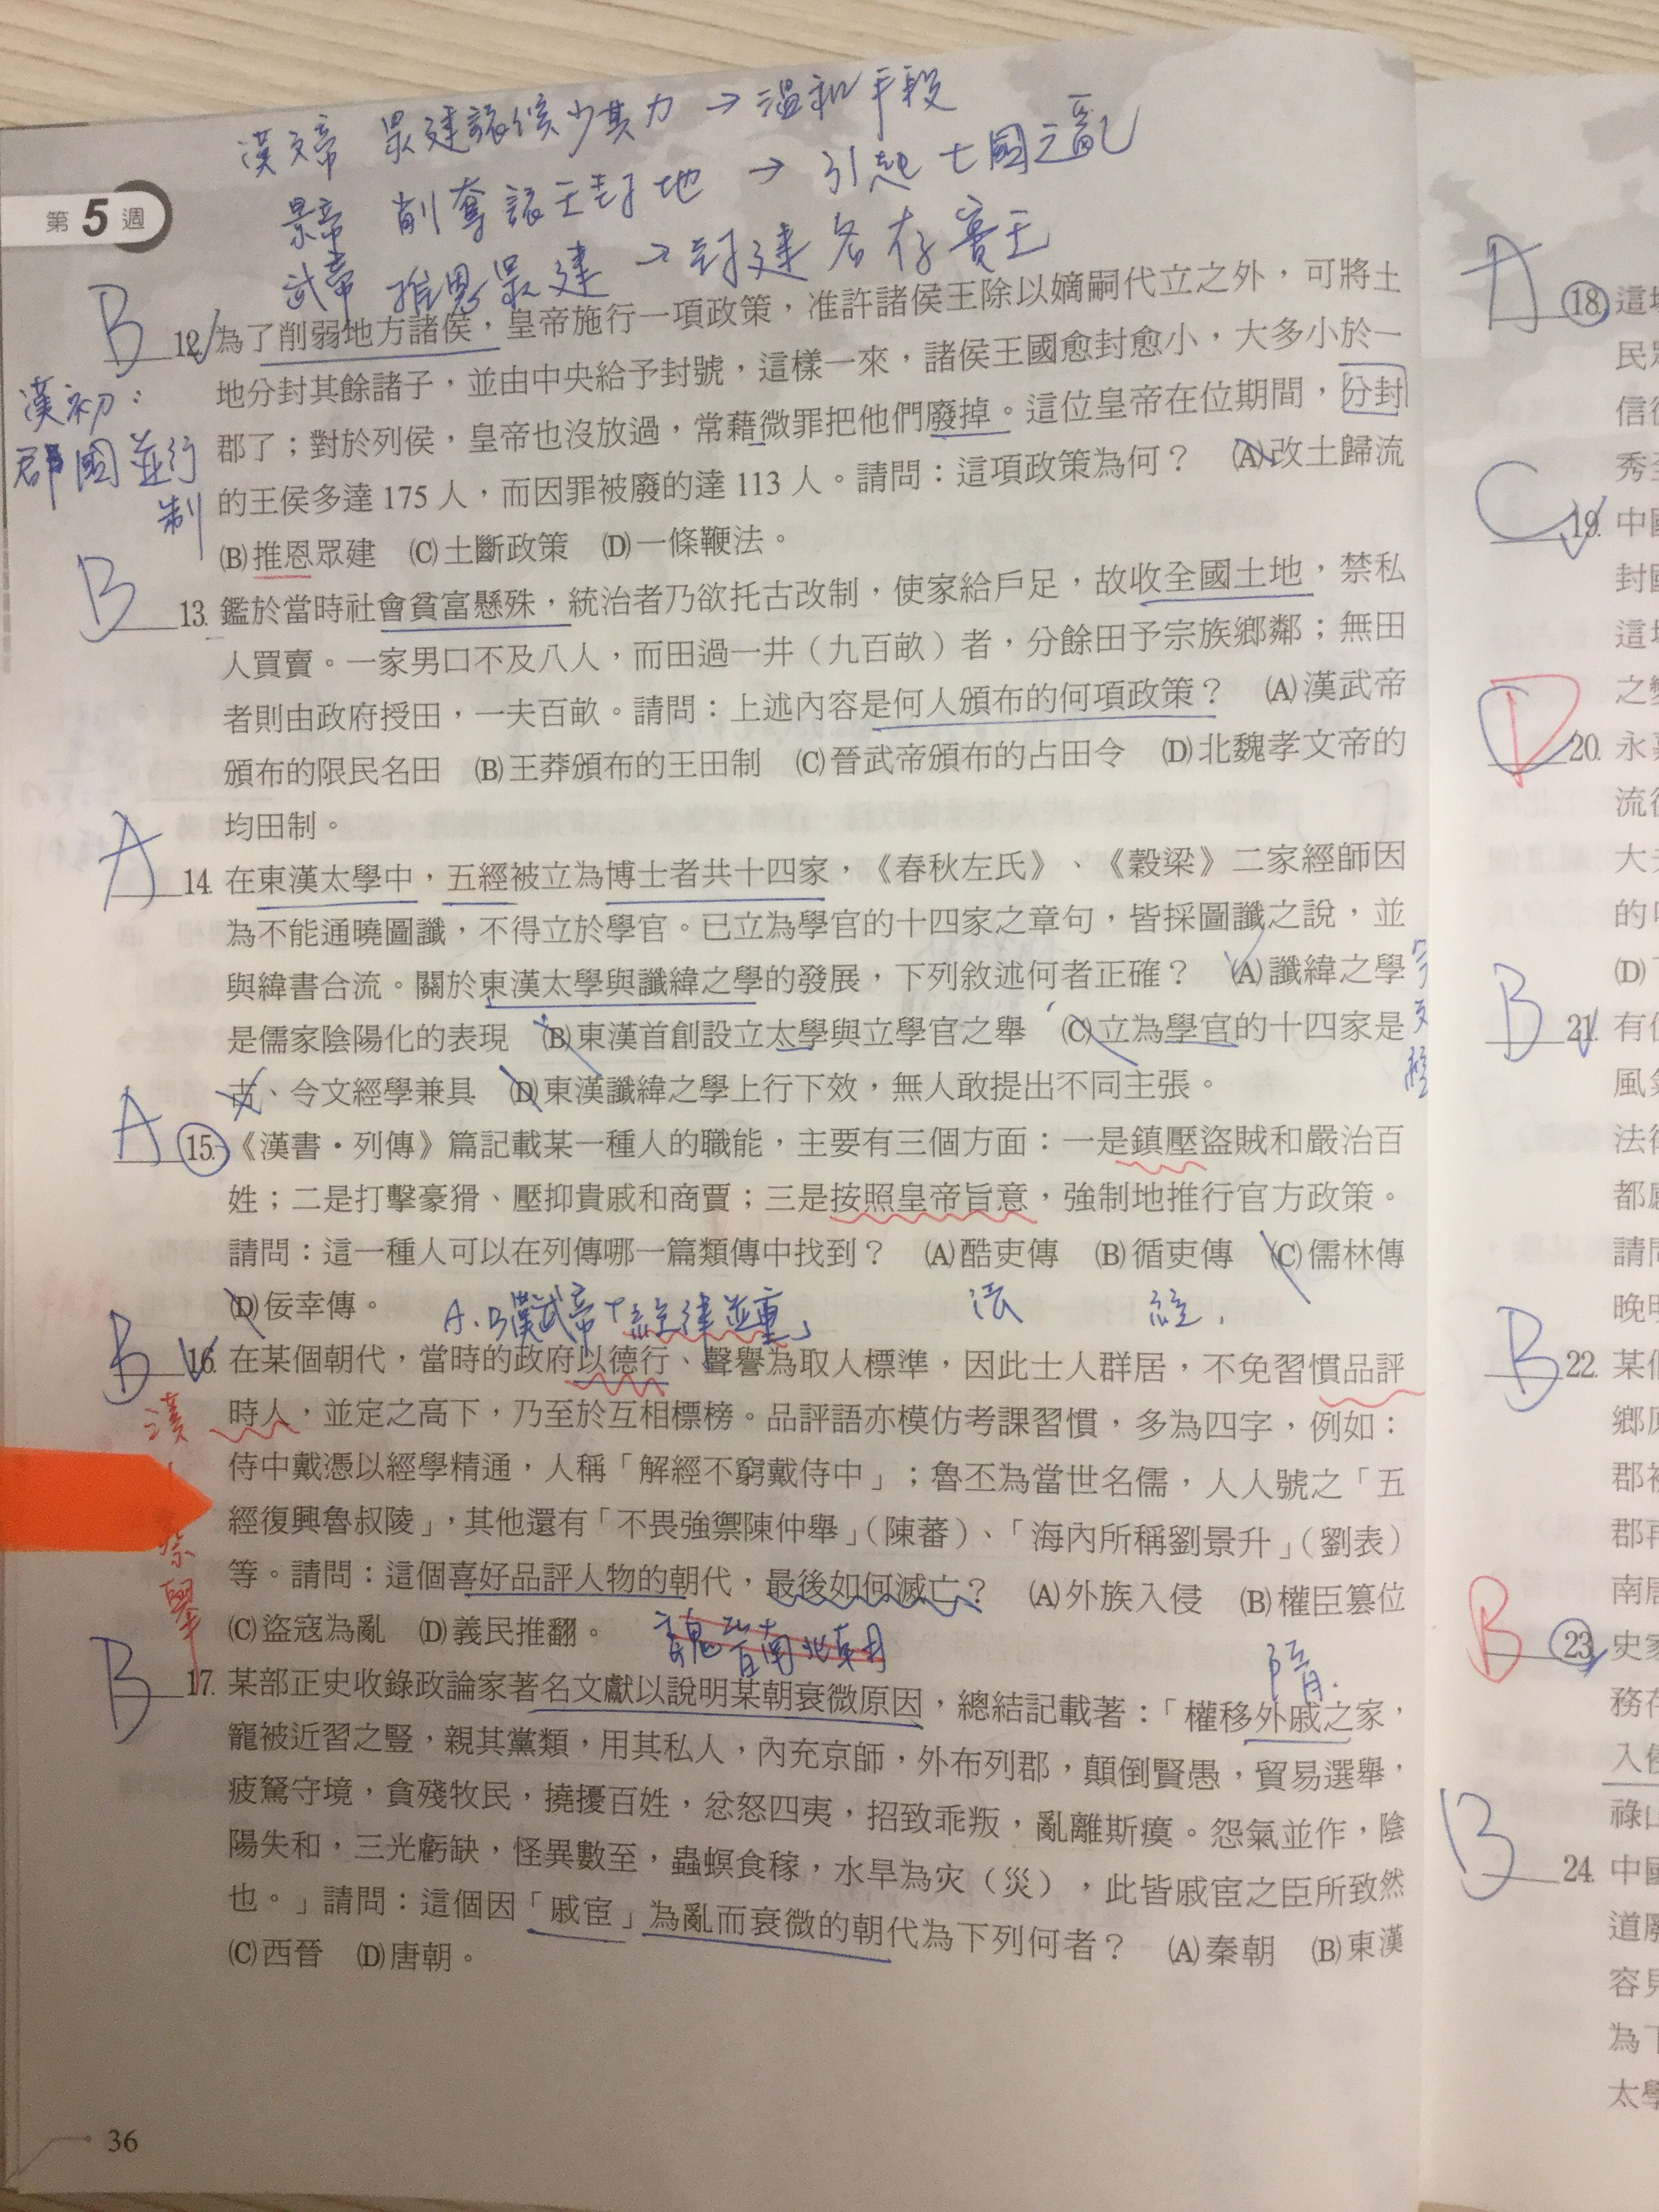 漢文帝 眾建諸侯少其力 → 溫和手段
景帝 削奪諸王封地 → 引起七國之亂
武帝 推恩眾建 → 封建名存實亡
第5週
B 12. 為了削弱地方諸侯，皇帝施行一項政策，准許諸侯王除以嫡嗣代立之外，可將土
地分封其餘諸子，並由中央給予封號，這樣一來，諸侯王國愈封愈小，大多小於一
郡了；對於列侯，皇帝也沒放過，常藉微罪把他們廢掉。這位皇帝在位期間，分封
的王侯多達175人，而因罪被廢的達113人。請問：這項政策為何？ (A)改土歸流
(B)推恩眾建 (C)土斷政策 (D)一條鞭法。
漢初：
郡國並行
制
B 13. 鑑於當時社會貧富懸殊，統治者乃欲托古改制，使家給戶足，故收全國土地，禁私
人買賣。一家男口不及八人，而田過一井（九百畝）者，分餘田予宗族鄉鄰；無田
者則由政府授田，一夫百畝。請問：上述內容是何人頒布的何項政策？ (A)漢武帝
頒布的限民名田 (B)王莽頒布的王田制 (C)晉武帝頒布的占田令 (D)北魏孝文帝的
均田制。
A 14. 在東漢太學中，五經被立為博士者共十四家，《春秋左氏》、《穀梁》二家經師因
為不能通曉圖讖，不得立於學官。已立為學官的十四家之章句，皆採圖讖之說，並
與緯書合流。關於東漢太學與讖緯之學的發展，下列敘述何者正確？ (A)讖緯之學
是儒家陰陽化的表現 (B)東漢首創設立太學與立學官之舉 (C)立為學官的十四家是
古、今文經學兼具 (D)東漢讖緯之學上行下效，無人敢提出不同主張。
今文經
A 15. 《漢書・列傳》篇記載某一種人的職能，主要有三個方面：一是鎮壓盜賊和嚴治百
姓；二是打擊豪猾、壓抑貴戚和商賈；三是按照皇帝旨意，強制地推行官方政策。
請問：這一種人可以在列傳哪一篇類傳中找到？ (A)酷吏傳 (B)循吏傳 (C)儒林傳
(D)佞幸傳。
A.B漢武帝「經律並重」
法 經
B 16. 在某個朝代，當時的政府以德行、聲譽為取人標準，因此士人群居，不免習慣品評
時人，並定之高下，乃至於互相標榜。品評語亦模仿考課習慣，多為四字，例如：
侍中戴憑以經學精通，人稱「解經不窮戴侍中」；魯丕為當世名儒，人人號之「五
經復興魯叔陵」，其他還有「不畏強禦陳仲舉」（陳蕃）、「海內所稱劉景升」（劉表）
等。請問：這個喜好品評人物的朝代，最後如何滅亡？ (A)外族入侵 (B)權臣篡位
(C)盜寇為亂 (D)義民推翻。
漢
察舉
魏晉南北朝
隋.
B 17. 某部正史收錄政論家著名文獻以說明某朝衰微原因，總結記載著：「權移外戚之家，
寵被近習之豎，親其黨類，用其私人，內充京師，外布列郡，顛倒賢愚，貿易選舉，
疲駑守境，貪殘牧民，撓擾百姓，忿怒四夷，招致乖叛，亂離斯瘼。怨氣並作，陰
陽失和，三光虧缺，怪異數至，蟲螟食稼，水旱為灾（災），此皆戚宦之臣所致然
也。」請問：這個因「戚宦」為亂而衰微的朝代為下列何者？ (A)秦朝 (B)東漢
(C)西晉 (D)唐朝。
36
A 18. 這
民
信
秀
C 19. 中
封
這
之
D 20. 永
流
大
的
(D)
B 21. 有
風
法
都
請
晚
B 22. 某
鄉
郡
郡
南
B 23. 史
務
入
祿
B 24. 中
道
容
為
太